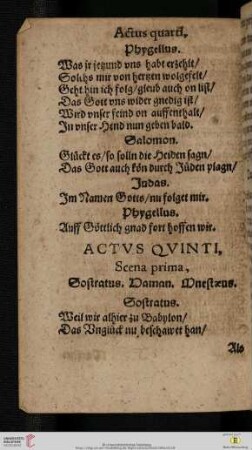 Actus quarti,
Phygellus.
Was jr jetzund vns habt erzehlt/
Solchs mir von hertzen wolgefelt/
Geht hin ich folg/gleub auch on list/
Das Gott vns wider gnedig ist/
Wird vnser feind on auffenthalt/
In vnser Hend nun geben bald.
Salomon.
Glückt es/so solln die Heiden sagn/
Das Gott auch kön durch Jüden plagn/
Judas.
Im Namen Gotts/nu folget mir.
Phygellus.
Auff Göttlich gnad fort hoffen wir.
ACTVS QVINTI,
Scena prima,
Sostratus. Daman. Mnestæus.
Sostratus.
Weil wir alhier zu Babylon/
Das Vnglück nu beschawet han/
Als